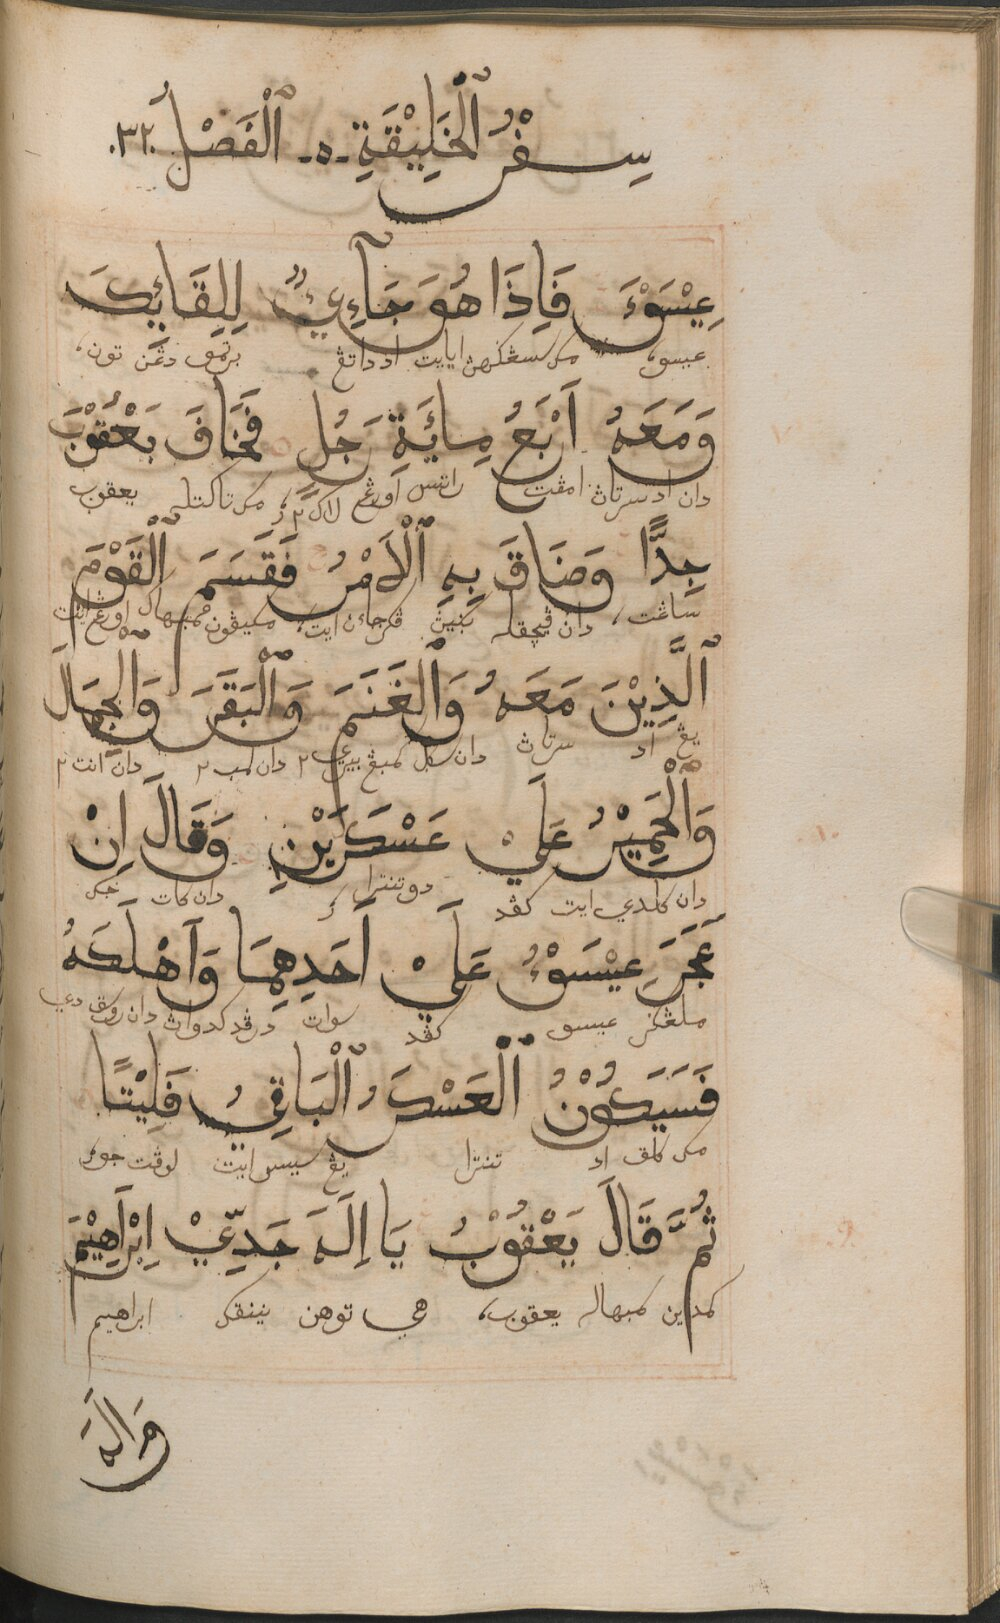 سِفْرُ ٱلْخَلِيْقَةِ -ه- ٱلْفَصْلُ .٣٢.
عِيْسَوْءَ فَاِذَا هُوَ جَآءِيٌ لِلِقَائِكَ
عيسوء، مك سڠكهن اياايت اد داتڠ برتمو دڠن تون،
وَمَعَهُ اَرْبَعُ مِائَةِ رَجُلٍ فَخَافَ يَعْقُوْبَ
دان اد سرتاڽ امڤت راتس اورڠ لاكي٢، مك تاكتله يعقوب
جِدًّا وَضَاقَ بِهِ ٱلْاَمْرُ فَقَسَمَ ٱلْقَوْمَ
ساڠت، دان ڤيچقله بݢيڽ ڤكرجاءن ايت، اورڠ ايت
ٱلَّذِيْنَ مَعَهُ وَٱلْغَنَمَ وَٱلْبَقَرَ وَٱلْجِمَالَ
يڠ اد سرتاڽ دان سكل كمبڠ بيري٢ دان لمب٢ دان انت٢
وَٱلْحَمِيْرُ عَلَيْ عَسْكَرَيْنِ وَقَالَ اِنْ
دان كلدي ايت كڤد دو تنترا دان كات جك
عَجَرَ عِيْسَوْءُ عَلَيْ اَحَدِهِمَا وَاَهْلَكَهُ
ملڠكر عيسو كڤد سوات درڤد كدواڽ دان روسقن دي
فَسَيَكُوْنُ ٱلْعَسْكَرُ ٱلْبَاقِيُ فَلِيْتًا
مك اكن اد تنترا يڠ سيس ايت لوڤت جوك
ثُمَّ قَالَ يَعْقُوْبُ يَا اِلَهَ جَدِّيْ اِبْرَاهِيْمَ
كمدين سمبهاله يعقوب، هي توهن نينقك ابراهيم
وَالَهَ